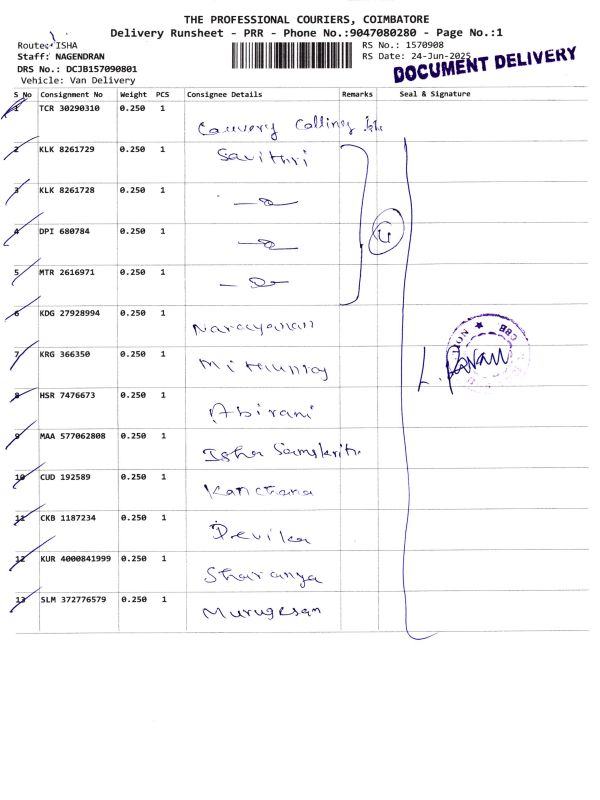 THE PROFESSIONAL COURIERS, COIMBATORE
Delivery Runsheet - PRR - Phone No.:9047080280 - Page No.:1
Route: ISHA
RS No.: 1570908
Staff: NAGENDRAN
RS Date: 24-Jun-2025
DRS No.: DCJB157090801
DOCUMENT DELIVERY
Vehicle: Van Delivery
S No Consignment No Weight PCS Consignee Details Remarks Seal & Signature
1 TCR 30290310 0.250 1 Cauvery Calling
2 KLK 8261729 0.250 1 Savithri
3 KLK 8261728 0.250 1
4 DPI 680784 0.250 1
5 MTR 2616971 0.250 1
6 KDG 27928994 0.250 1 Narayanan
7 KRG 366350 0.250 1
8 HSR 7476673 0.250 1 Abirami
9 MAA 577062808 0.250 1 Isha Samskriti
10 CUD 192589 0.250 1 Kanchana
11 CKB 1187234 0.250 1 Devika
12 KUR 4000841999 0.250 1 Sharanya
13 SLM 372776579 0.250 1 Murugesan